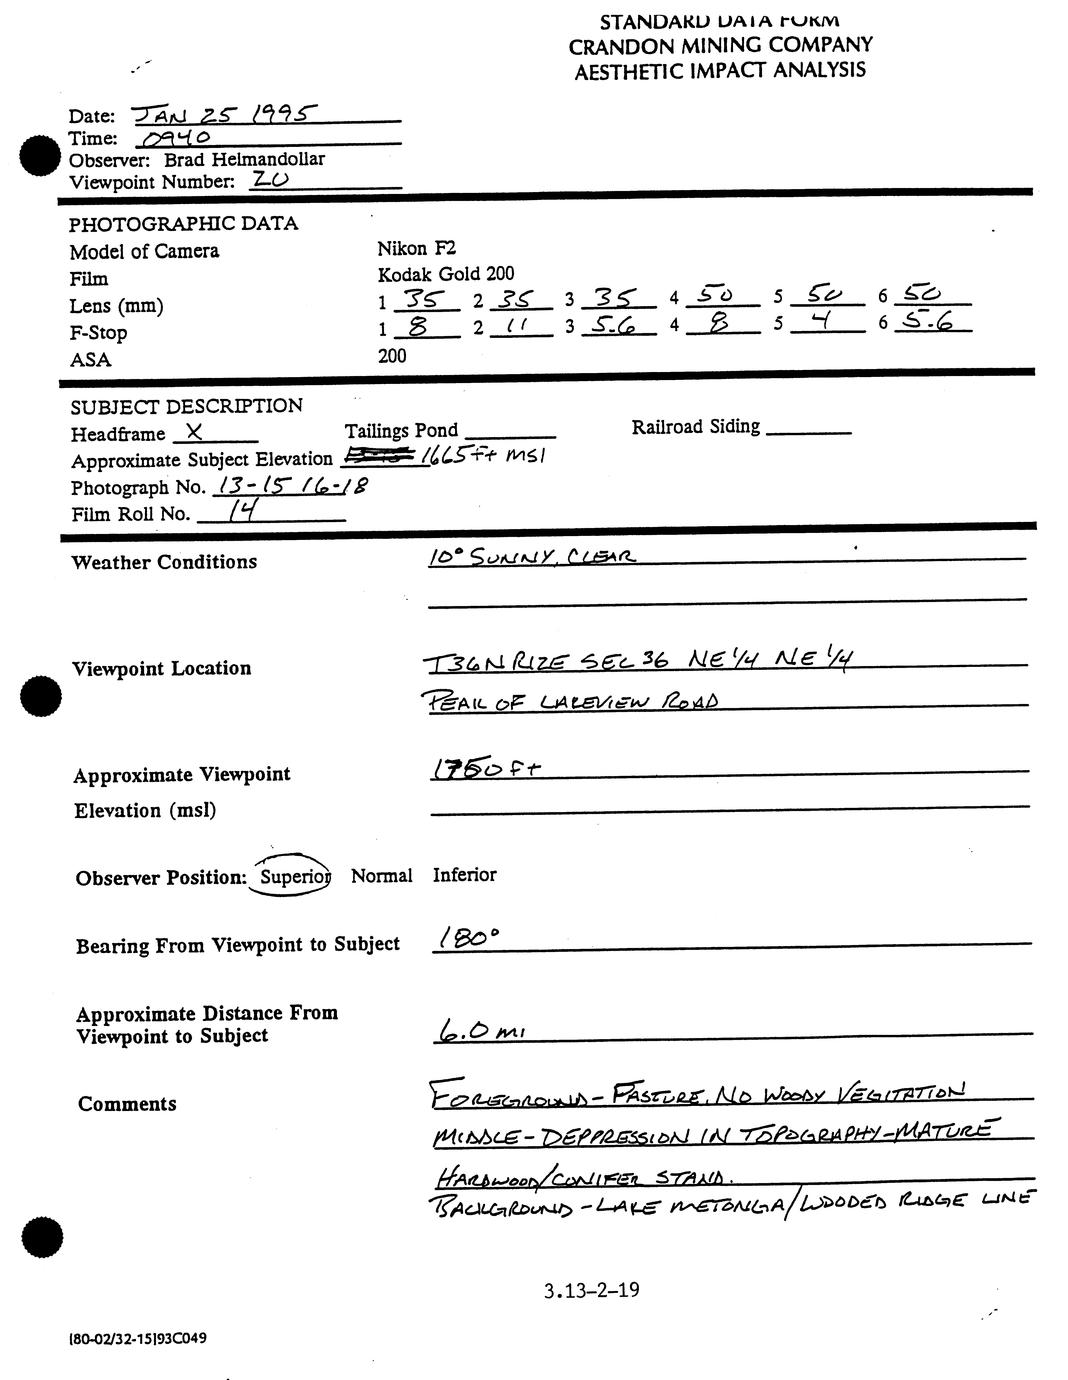 STANDARD DATA FORM
CRANDON MINING COMPANY
AESTHETIC IMPACT ANALYSIS
Date: JAN 25 1995
Time: 0940
Observer: Brad Helmandollar
Viewpoint Number: 20
PHOTOGRAPHIC DATA
Model of Camera Nikon F2
Film Kodak Gold 200
Lens (mm) 1 35 2 35 3 35 4 50 5 50 6 50
F-Stop 1 8 2 11 3 5.6 4 8 5 4 6 5.6
ASA 200
SUBJECT DESCRIPTION
Headframe X Tailings Pond Railroad Siding
Approximate Subject Elevation 1665 ft msl
Photograph No. 13-15 16-18
Film Roll No. 14
Weather Conditions 10° SUNNY, CLEAR
Viewpoint Location T36N R12E SEC 36 NE 1/4 NE 1/4
PEAK OF LAKEVIEW ROAD
Approximate Viewpoint 1750 ft
Elevation (msl)
Observer Position: Superior Normal Inferior
Bearing From Viewpoint to Subject 180°
Approximate Distance From
Viewpoint to Subject 6.0 mi
Comments FOREGROUND - PASTURE, NO WOODY VEGITATION
MIDDLE - DEPPRESSION IN TOPOGRAPHY - MATURE
HARDWOOD/CONIFER STAND.
BACKGROUND - LAKE METONGA/WOODED RIDGE LINE
3.13-2-19
[80-02/32-15]93C049